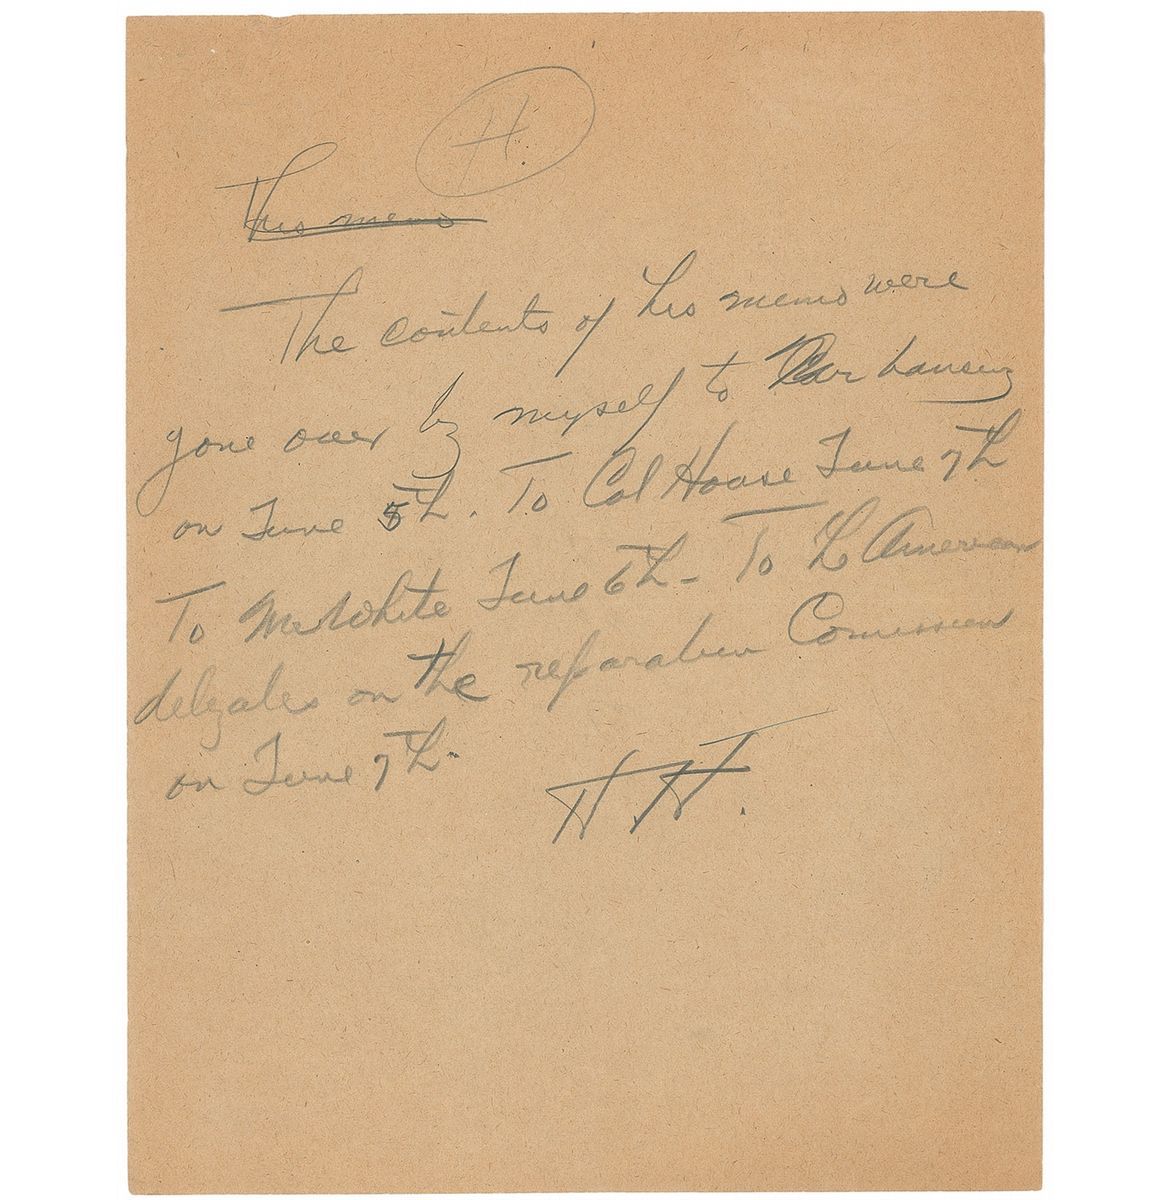 H.
This memo
The contents of his memo were
gone over by myself to Lansing
on June 5th. To Col House June 7th
To Mr White June 6th - To th American
delegates on the reparation Commission
on June 7th.
H H.